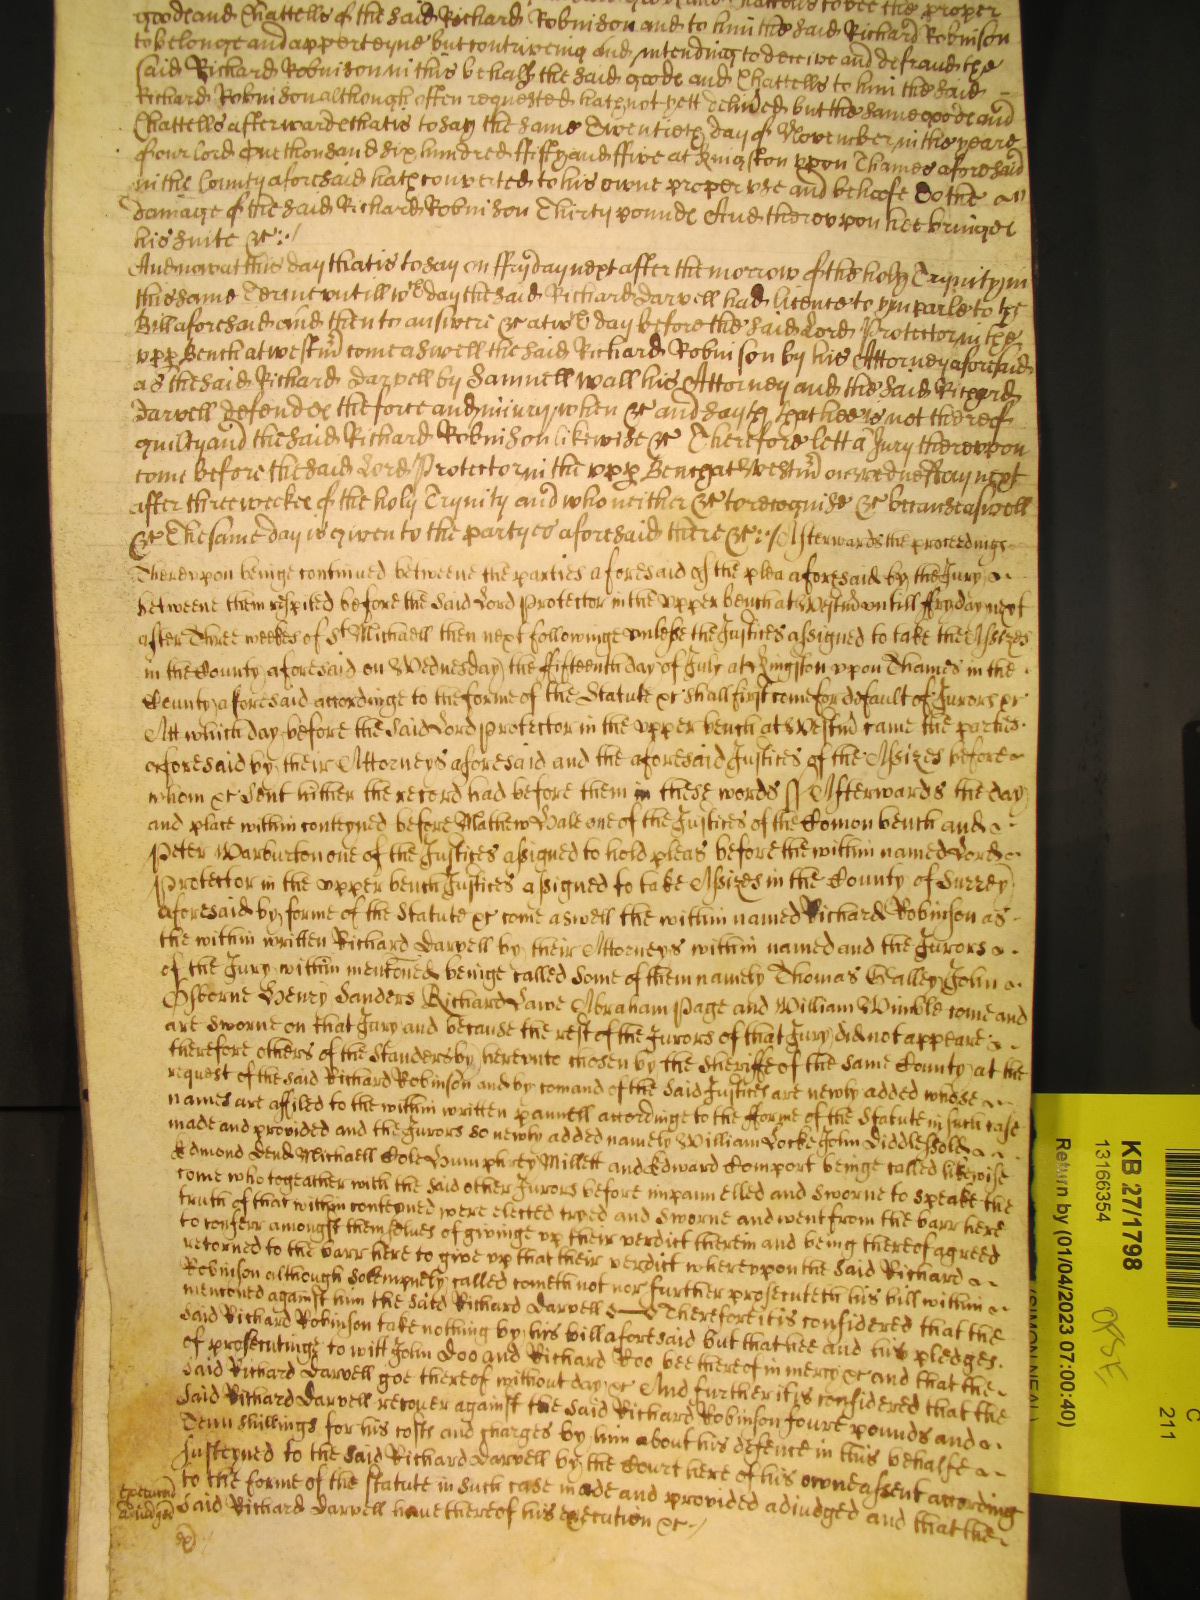 goode and Chattells of the said Richard Robinson and to him the said Richard Robinson
to belonge and apperteyne but contriveing and intending to deceive and defraud the
said Richard Robinson in this behalfe the said goode and Chattells to him the said
Richard Robinson although often requested hath not yett delivered but the same goode and
Chattells afterwarde that is to say the same Twentieth day of November in the yeare
of our lord One thousand six hundred ffifty and ffive at Kingston vpon Thames aforesaid
in the County aforesaid hath converted to his owne proper vse and behoofe To the
damage of the said Richard Robinson Thirty pounde And therevpon hee bringes
his suite &c
And now at this day that is to say on ffryday next after the morrow of the holy Trynity in
this same Terme vntill wch day the said Richard Darvell had licence to imparle to the
Bill aforesaid and then to answere &c at wch day before the said Lord Protector in the
vpp Bench at westmr come aswell the said Richard Robinson by his Attorney aforesaid
as the said Richard Darvell by Samuell Wall his Attorney and the said Richard
Darvell defendes the force and iniury when &c and sayth that hee is not thereof
guilty and the said Richard Robinson likewise &c Therefore lett a Jury therevpon
come before the said Lord Protector in the vpp Bench at Westmr on wednesday next
after three weekes of the holy Trynity and who neither &c to recognise &c because aswell
&c The same day is given to the partyes aforesaid there &c Afterwards the proceedings
Therevpon beinge continued betweene the parties aforesaid of the plea aforesaid by the Jury
betweene them respited before the said Lord Protector in the vpper bench at Westmr vntill ffryday next
after Three weekes of St Michaell then next followinge vnlesse the Justices assigned to take the Assizes
in the County aforesaid on Wednesday the fifteenth day of July at Kingston vpon Thames in the
County aforesaid accordinge to the forme of the Statute &c shall first come for default of Jurors &c
Att which day before the said Lord Protector in the vpper bench at Westmr came the parties
aforesaid by their Attorneys aforesaid and the aforesaid Justices of the Assizes before
whom &c sent hither the record had before them in these words Afterwards the day
and place within conteyned before Mathew Hale one of the Justices of the Comon bench and
Peter Warburton one of the Justices assigned to hold pleas before the within named Lord
Protector in the vpper bench Justices assigned to take Assizes in the County of Surrey
aforesaid by forme of the Statute &c come aswell the within named Richard Robinson as
the within written Richard Darvell by their Attorneys within named and the Jurors
of the Jury within mentoned beinge called some of them namely Thomas Galley John
Osborne Henry Sanders Richard Lawe Abraham Page and William Wimble come and
are sworne on that Jury and because the rest of the Jurors of that Jury did not appeare
therefore others of the Standersby herevnto chosen by the Sheriffe of the same County at the
request of the said Richard Robinson and by comand of the said Justices are newly added whose
names are affiled to the within written pannell accordinge to the forme of the Statute in such case
made and provided and the Jurors so newly added namely William Locke John
Edmond Dend Michaell Cole Humphrey Millett and Edward Comport beinge called likewise
come who togeather with the said other Jurors before impannelled and sworne to speake the
truth of that within conteyned were elected tryed and sworne and went from the barr here
to conferr amongst themselues of givinge vp their verdict therein and being thereof agreed
retorned to the barr here to give vp that their verdict wherevpon the said Richard
Robinson although solempnely called cometh not nor further prosecuteth his bill within
mentoned against him the said Richard Darvell Therefore it is considered that the
said Richard Robinson take nothing by his bill aforesaid but that hee and his pledges
of prosecutinge to witt John Doo and Richard Roo bee thereof in mercy &c and that the
said Richard Darvell goe thereof without day &c And further it is considered that the
said Richard Darvell recover against the said Richard Robinson foure pounds and
Tenn shillings for his costs and charges by him about his defence in this behalfe
susteyned to the said Richard Darvell by the Court here of his owne assent according
to the forme of the statute in such case made and provided adiudged and that the
said Richard Darvell haue thereof his execution &c
KB 27/1798
13166354
Return by (01/04/2023 07:00:40)
(SIMON NEAL)
C
211